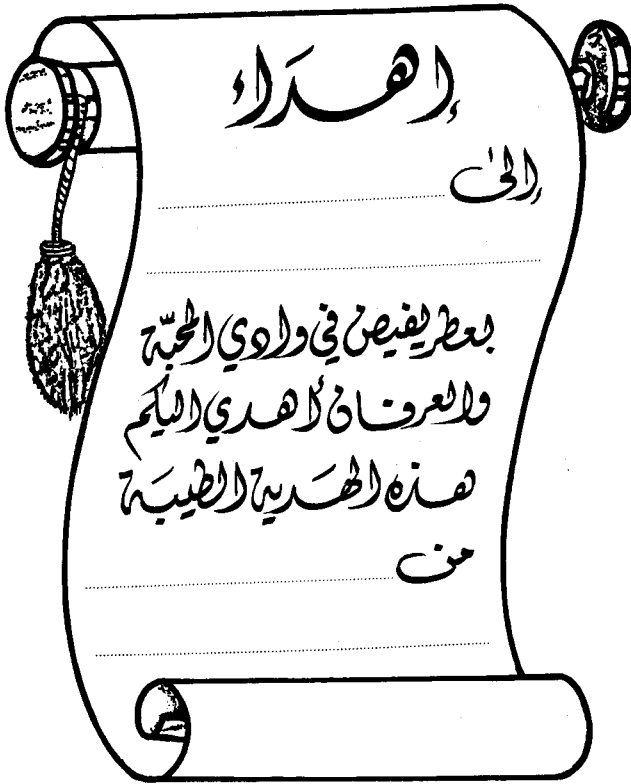 إهداء
إلى
بعطر يفيض في وادي المحبّة
والعرفان أهدي اليكم
هذه الهَدية الطيبَة
من